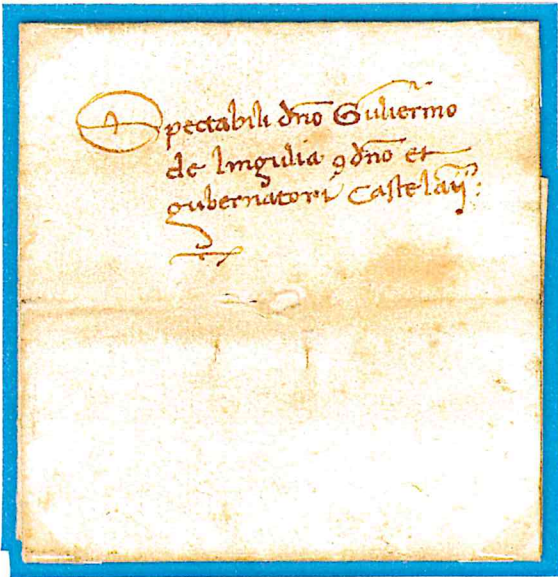 Spectabili dño Guliermo
de lingulia ꝯdño et
gubernatori Castelaij: